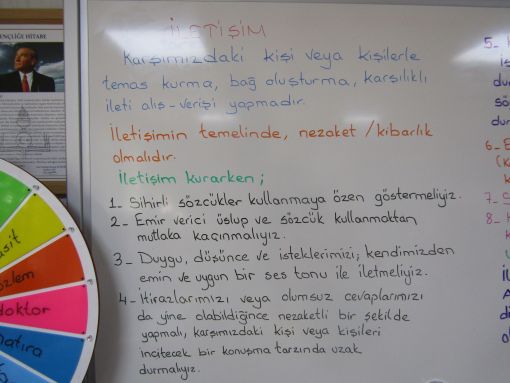 GENÇLİĞE HİTABE
İLETİŞİM
Karşımızdaki kişi veya kişilerle
temas kurma, bağ oluşturma, karşılıklı
ileti alış-verişi yapmadır.
İletişimin temelinde, nezaket / kibarlık
olmalıdır.
İletişim kurarken;
1- Sihirli sözcükler kullanmaya özen göstermeliyiz.
2- Emir verici üslup ve sözcük kullanmaktan
mutlaka kaçınmalıyız.
3- Duygu, düşünce ve isteklerimizi; kendimizden
emin ve uygun bir ses tonu ile iletmeliyiz.
4- İtirazlarımızı veya olumsuz cevaplarımızı
da yine olabildiğince nezaketli bir şekilde
yapmalı, karşımızdaki kişi veya kişileri
incitecek bir konuşma tarzında uzak
durmalıyız.
5-
6-
7-
8-
doktor